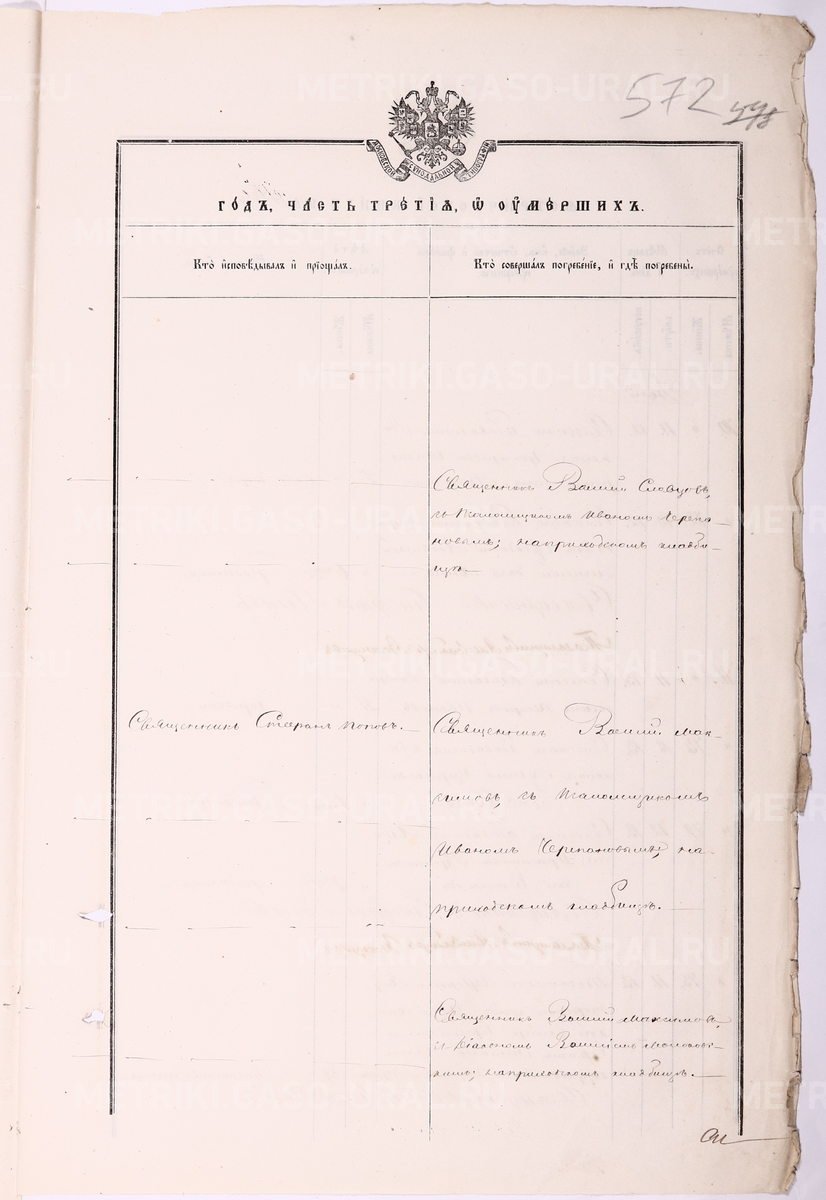 572
МОСКОВСКОЙ СѴНОДАЛЬНОЙ ТИПОГРАФІИ
ГОДЪ, ЧАСТЬ ТРЕТІѦ, Ѡ ОУМЕРШИХЪ.
Кто исповѣдывалъ и прїощалъ.
Кто совершалъ погребенїе, и гдѣ погребены.
Священникъ Василій Словцовъ,
съ Псаломщикомъ Иваномъ Черепа-
новымъ; на приходскомъ кладби-
щѣ.
Священникъ Стефанъ Поповъ.
Священникъ Василій Мак-
симовъ, съ Псаломщикомъ
Иваномъ Черепановымъ; на
приходскомъ кладбищѣ.
Священникъ Василій Максимовъ,
съ Діакономъ Василіемъ
на приходскомъ кладбищѣ.
METRIKI.GASO-URAL.RU